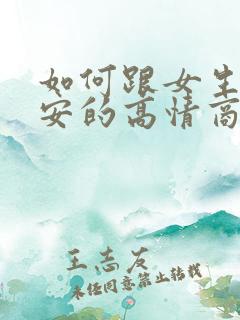 如何跟女生
安的高情商
王志友
未经同意禁止转载